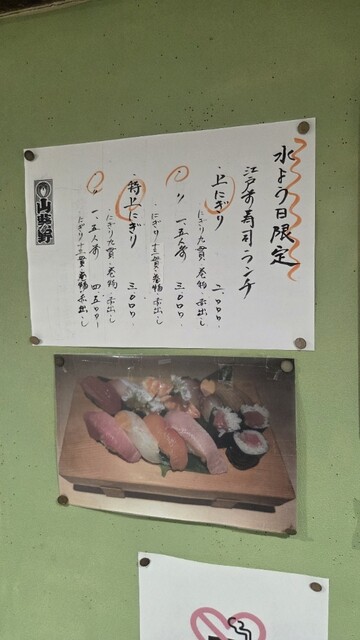 水よう日限定
江戸前寿司ランチ
・上にぎり 二〇〇〇.
・にぎり九貫・巻物・赤出し
・〃 一、五人前 三〇〇〇.
・にぎり十三貫・巻物・赤出し
・特上にぎり 三〇〇〇.
・にぎり九貫・巻物・赤出し
・〃 一、五人前 四五〇〇.
・にぎり十三貫・巻物・赤出し